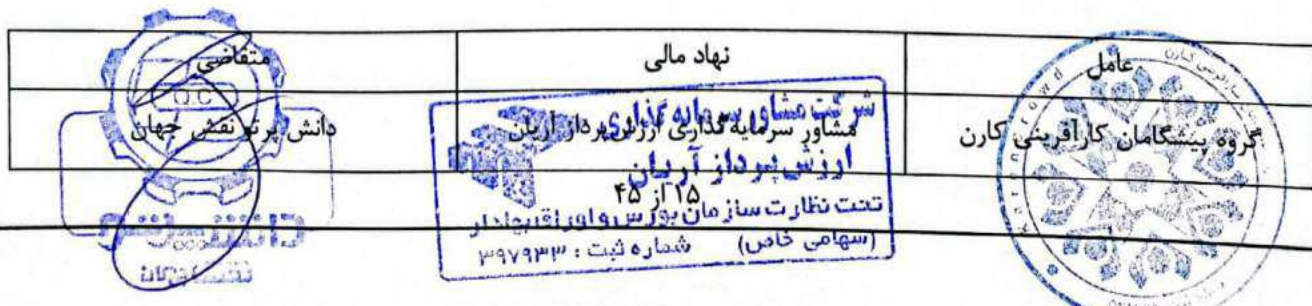 عامل نهاد مالی متقاضی
گروه پیشگامان کارآفرینی کارن مشاور سرمایه گذاری ارزش پرداز آریان دانش پرتو نقش جهان
۱۵ از ۴۵
شرکت مشاور سرمایه گذاری
ارزش پرداز آریان
تحت نظارت سازمان بورس و اوراق بهادار
(سهامی خاص) شماره ثبت : ۳۹۷۹۳۳
Q.C